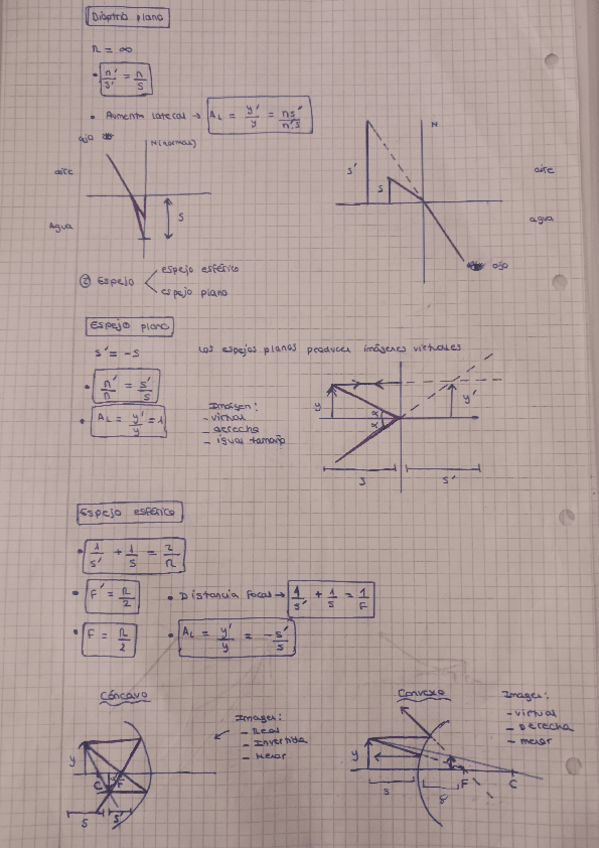 Dioptrio plano
r = ∞
• n'/s' = n/s
• Aumento lateral → AL = y'/y = ns'/n's
ojo
N(normal)
aire
Agua
s
N
s'
s
aire
agua
ojo
② Espejo
espejo esférico
espejo plano
Espejo plano
s' = -s
Los espejos planos producen imágenes virtuales
• n'/n = s'/s
• AL = y'/y = 1
Imágen:
- virtual
- derecha
- igual tamaño
y
α
α
y'
s
s'
Espejo esférico
• 1/s' + 1/s = 2/R
• F' = R/2
• Distancia focal → 1/s' + 1/s = 1/F
• F = R/2
• AL = y'/y = -s'/s
Cóncavo
y
C
F
s
s'
Imagen:
- Real
- Invertida
- Menor
Convexo
y
s
F
C
Imagen:
- virtual
- derecha
- menor